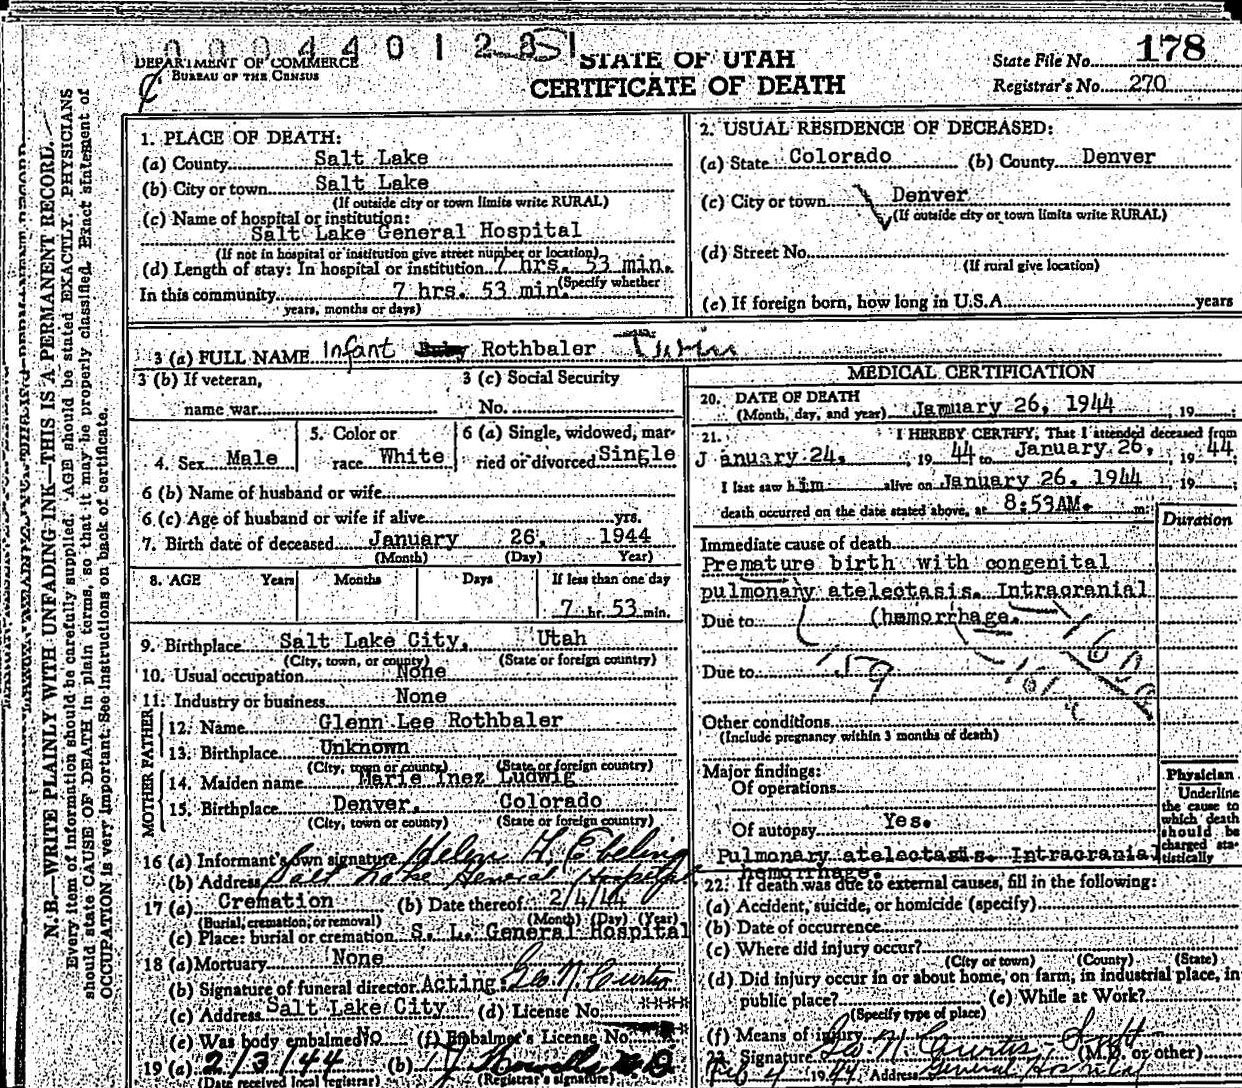 0 0 0 4 4 0 1 2 8 5 1
DEPARTMENT OF COMMERCE
BUREAU OF THE CENSUS
STATE OF UTAH
CERTIFICATE OF DEATH
State File No. 178
Registrar's No. 270
N.B.—WRITE PLAINLY WITH UNFADING INK—THIS IS A PERMANENT RECORD.
Every item of information should be carefully supplied. AGE should be stated EXACTLY. PHYSICIANS
should state CAUSE OF DEATH in plain terms, so that it may be properly classified. Exact statement of
OCCUPATION is very important. See instructions on back of certificate.
1. PLACE OF DEATH:
(a) County Salt Lake
(b) City or town Salt Lake
(If outside city or town limits write RURAL)
(c) Name of hospital or institution:
Salt Lake General Hospital
(If not in hospital or institution give street number or location)
(d) Length of stay: In hospital or institution 7 hrs. 53 min.
(Specify whether
In this community 7 hrs. 53 min.
years, months or days)
2. USUAL RESIDENCE OF DECEASED:
(a) State Colorado (b) County Denver
(c) City or town Denver
(If outside city or town limits write RURAL)
(d) Street No.
(If rural give location)
(e) If foreign born, how long in U.S.A. years
3 (a) FULL NAME Infant Baby Rothbaler Twin
3 (b) If veteran,
name war
3 (c) Social Security
No.
4. Sex Male
5. Color or
race White
6 (a) Single, widowed, mar-
ried or divorced Single
6 (b) Name of husband or wife
6 (c) Age of husband or wife if alive yrs.
7. Birth date of deceased January 26, 1944
(Month) (Day) Year)
8. AGE Years Months Days If less than one day
7 hr. 53 min.
9. Birthplace Salt Lake City, Utah
(City, town, or county) (State or foreign country)
10. Usual occupation None
11. Industry or business None
FATHER
12. Name Glenn Lee Rothbaler
13. Birthplace Unknown
(City, town or county) (State or foreign country)
MOTHER
14. Maiden name Marie Inez Ludwig
15. Birthplace Denver, Colorado
(City, town or county) (State or foreign country)
16 (a) Informant's own signature Helen H. Ebeling
(b) Address Salt Lake General Hospital
17 (a) Cremation (b) Date thereof 2/4/44
(Burial, cremation, or removal) (Month) (Day) (Year)
(c) Place: burial or cremation S. L. General Hospital
18 (a) Mortuary None
(b) Signature of funeral director Acting: Geo. N. Curtis
(c) Address Salt Lake City (d) License No. ****
(e) Was body embalmed No (f) Embalmer's License No.
19 (a) 2/3/44 (b)
(Date received local registrar) (Registrar's signature)
MEDICAL CERTIFICATION
20. DATE OF DEATH
(Month, day, and year) January 26, 1944, 19
21. I HEREBY CERTIFY, That I attended deceased from
January 24, 19 44 to January 26, 19 44
I last saw him alive on January 26, 1944, 19
death occurred on the date stated above, at 8:53AM. m.
Duration
Immediate cause of death
Premature birth with congenital
pulmonary atelectasis. Intracranial
Due to (hemorrhage.
Due to 159 161a 160a
Other conditions
(Include pregnancy within 3 months of death)
Major findings:
Of operations
Of autopsy Yes.
Pulmonary atelectasis. Intracranial
hemorrhage.
Physician
Underline
the cause to
which death
should be
charged sta-
tistically
22. If death was due to external causes, fill in the following:
(a) Accident, suicide, or homicide (specify)
(b) Date of occurrence
(c) Where did injury occur?
(City or town) (County) (State)
(d) Did injury occur in or about home, on farm, in industrial place, in
public place? (e) While at Work?
(Specify type of place)
(f) Means of injury
23. Signature Geo N Curtis - Supt (M.D. or other)
Feb 4 1944. Address General Hospital